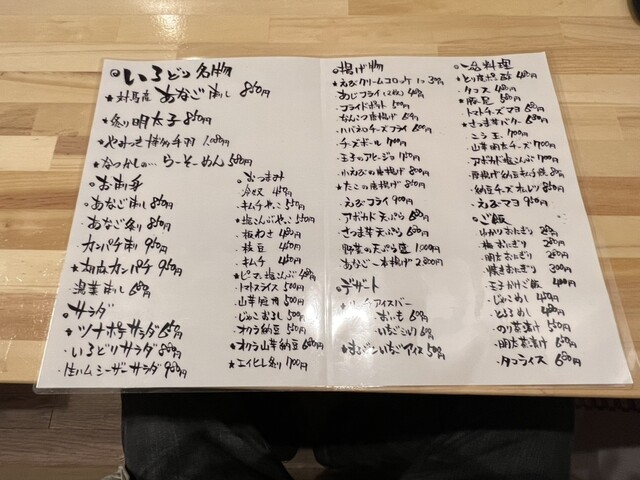 ◎いろどり名物
★対馬産 あなご刺し 880円
★炙り明太子 880円
★やみつき博多手羽 1,080円
★なつかしの…らーそーめん 580円
◎お刺身
・あなご刺し 880円
・あなご炙り 880円
・カンパチ刺 980円
★胡麻カンパチ 980円
・漁業刺し 680円
◎サラダ
★ツナポテサラダ 680円
・いろどりサラダ 880円
・生ハムシーザーサラダ 980円
◎おつまみ
・冷奴 450円
・キムチやっこ 550円
★塩こんぶやっこ 550円
・板わさ 480円
・枝豆 450円
・キムチ 450円
★ピーマン塩こんぶ 480円
・トマトスライス 500円
・山芋短冊 500円
・じゃこおろし 500円
・オクラ納豆 550円
★オクラ山芋納豆 680円
★エイヒレ炙り 700円
◎揚げ物
★えびクリームコロッケ 1コ 300円
・あじフライ(2枚) 480円
・フライドポテト 500円
・なんこつ唐揚げ 680円
・ハバネロチーズフライ 600円
・チーズボール 700円
・玉子のアヒージョ
・小えびの唐揚げ 880円
★たこの唐揚げ 880円
・えびフライ 900円
・アボカド天ぷら 680円
・さつま芋天ぷら 680円
・野菜の天ぷら盛 1,000円
・あなご一本揚げ 2,800円
◎デザート
アイスバー
おいも 600円
いちごミルク 600円
いちごアイス 500円
◎一品料理
★とり皮ポン酢 480円
・タコス 480円
★豚足 580円
・トマトチーズマヨ 680円
★さつま芋バター 680円
・こう玉 700円
・山芋明太チーズ 700円
・アボカド塩こんぶ 700円
・納豆チーズオムレツ 880円
・えびマヨ 980円
◎ご飯
・ゆかりおにぎり 280円
・梅おにぎり 280円
・明太おにぎり 280円
・焼きおにぎり 300円
・玉子かけご飯 400円
・じゃこめし 480円
・とろろめし 480円
・のり茶漬け 550円
・明太茶漬け 680円
・タコライス 680円